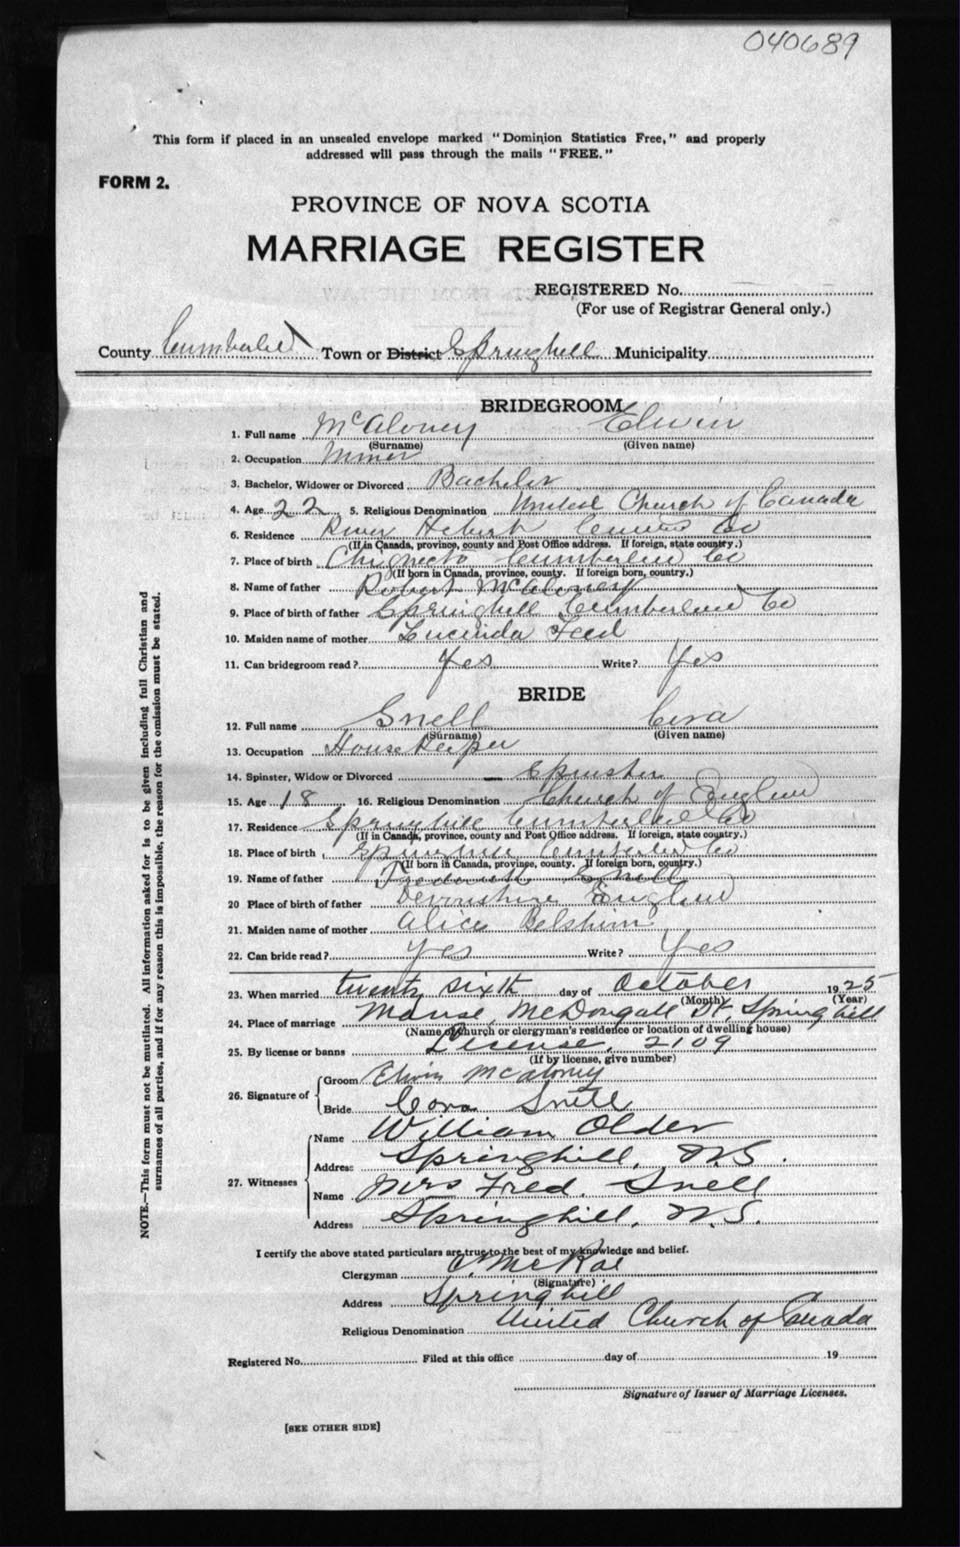 040689
This form if placed in an unsealed envelope marked "Dominion Statistics Free," and properly
addressed will pass through the mails "FREE."
FORM 2.
PROVINCE OF NOVA SCOTIA
MARRIAGE REGISTER
REGISTERED No.
(For use of Registrar General only.)
County Cumberland Town or District Springhill Municipality
BRIDEGROOM
1. Full name McAloney Elwin
(Surname) (Given name)
2. Occupation Miner
3. Bachelor, Widower or Divorced Bachelor
4. Age 22 5. Religious Denomination United Church of Canada
6. Residence River Hebert Co
(If in Canada, province, county and Post Office address. If foreign, state country.)
7. Place of birth Chignecto Cumberland Co
(If born in Canada, province, county. If foreign born, country.)
8. Name of father Robert McAloney
9. Place of birth of father Springhill Cumberland Co
10. Maiden name of mother Lucinda
11. Can bridegroom read? Yes Write? Yes
BRIDE
12. Full name Snell Cora
(Surname) (Given name)
13. Occupation House Keeper
14. Spinster, Widow or Divorced Spinster
15. Age 18 16. Religious Denomination Church of England
17. Residence Springhill Cumberland Co
(If in Canada, province, county and Post Office address. If foreign, state country.)
18. Place of birth Springhill Cumberland Co
(If born in Canada, province, county. If foreign born, country.)
19. Name of father Snell
20 Place of birth of father Devonshire England
21. Maiden name of mother Alice
22. Can bride read? Yes Write? Yes
23. When married twenty sixth day of October 1925
(Month) (Year)
24. Place of marriage Manse, McDougall St, Springhill
(Name of church or clergyman's residence or location of dwelling house)
25. By license or banns License, 2109
(If by license, give number)
26. Signature of Groom Elwin McAloney
Bride Cora Snell
27. Witnesses Name William Older
Address Springhill, N.S.
Name Mrs Fred. Snell
Address Springhill, N.S.
I certify the above stated particulars are true to the best of my knowledge and belief.
Clergyman McRae
(Signature)
Address Springhill
Religious Denomination United Church of Canada
Registered No. Filed at this office day of 19
Signature of Issuer of Marriage Licenses.
[SEE OTHER SIDE]
NOTE.—This form must not be mutilated. All information asked for is to be given including full Christian and
surnames of all parties, and if for any reason this is impossible, the reason for the omission must be stated.